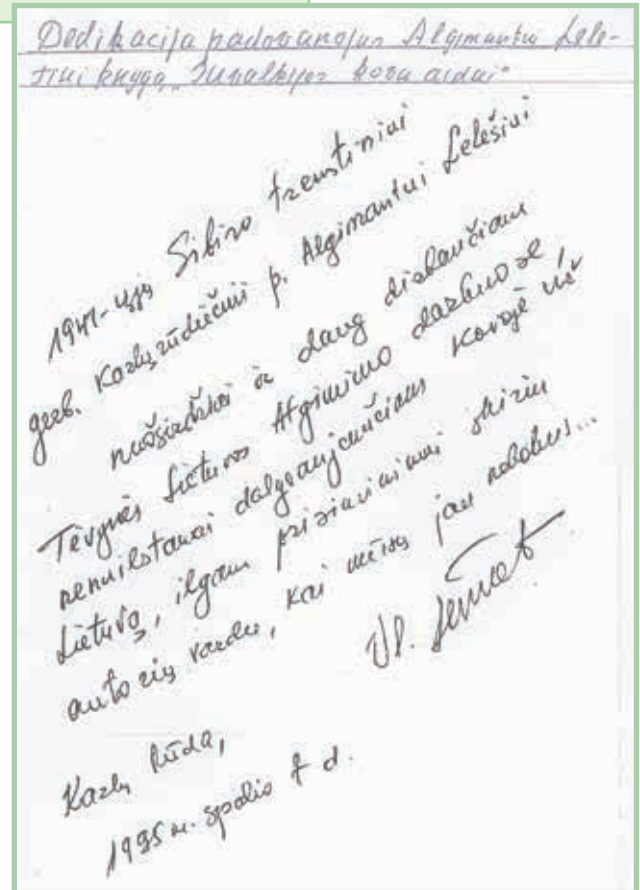 Dedikacija padovanojus Algimantui Lele-
šiui knygą „Suvalkijos kovų aidai“
1941-ųjų Sibiro tremtiniui
gerb. Kazlųrūdiečiui p. Algimantui Lelešiui
nuoširdžiai ir daug dirbančiam
Tėvynės Lietuvos Atgimimo darbuose,
nenuilstamai dalyvaujančiam kovoje už
Lietuvą, ilgam prisiminimui skiriu
autorių vardu, kai mūsų jau nebebus...
Vl.
Kazlų Rūda,
1995 m. spalio d.